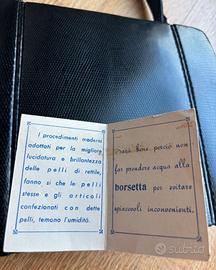 I procedimenti moderni
adottati per la migliore
lucidatura e brillantezza
delle pelli di rettile,
fanno sì che le pelli
stesse e gli articoli
confezionati con dette
pelli, temono l'umidità.
Sarà bene, perciò non
far prendere acqua alla
borsetta per evitare
spiacevoli inconvenienti.
subito